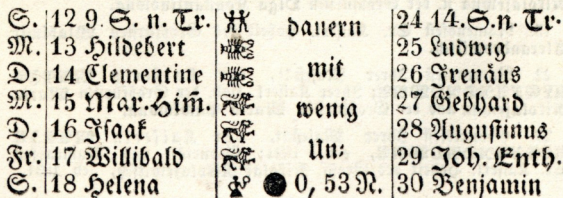 S. 12 9. S. n. Tr. dauern 24 14. S. n. Tr.
M. 13 Hildebert 25 Ludwig
D. 14 Clementine mit 26 Irenäus
M. 15 Mar. Him. wenig 27 Gebhard
D. 16 Isaak 28 Augustinus
Fr. 17 Willibald Un: 29 Joh. Enth.
S. 18 Helena ● 0, 53 N. 30 Benjamin